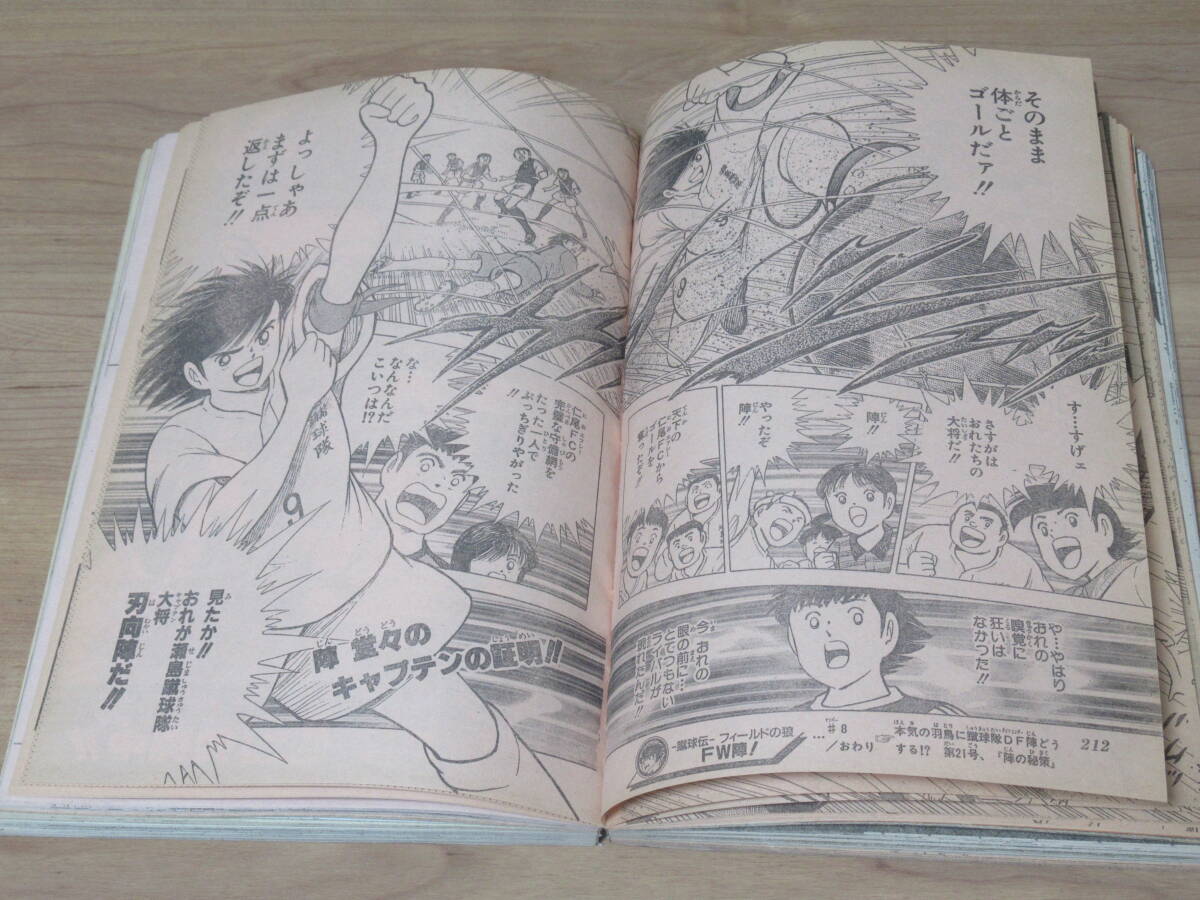 そのまま
体ごと
ゴールだァ!!
からだ
す…すげェ
さすがは
おれたちの
大将だ!!
たいしょう
陣!!
じん
やったぞ
陣!!
じん
天下の
仁尾FCから
ゴールを
奪ったぞ!!
や…やはり
おれの
嗅覚に
狂いは
なかった!!
今、おれの
眼の前に…
とてつもない
ライバルが
現れたんだ!!
212
本気の羽鳥に蹴球隊DF陣どう
する!? 第21号、『陣の秘策』
#8
…/おわり☞
-蹴球伝- フィールドの狼
FW陣!
よっしゃあ
まずは一点
返したぞ!!
仁尾FCの
完璧な守備網を
たった一人で
ぶっちぎりやがった
!!
な…
なんなんだ
こいつは!?
蹴球隊
9
見たか!!
おれが瀬島蹴球隊
大将
キャプテン
刃向陣だ!!
はむかい じん
陣 堂々の
じん どうどう
キャプテンの証明!!
しょうめい